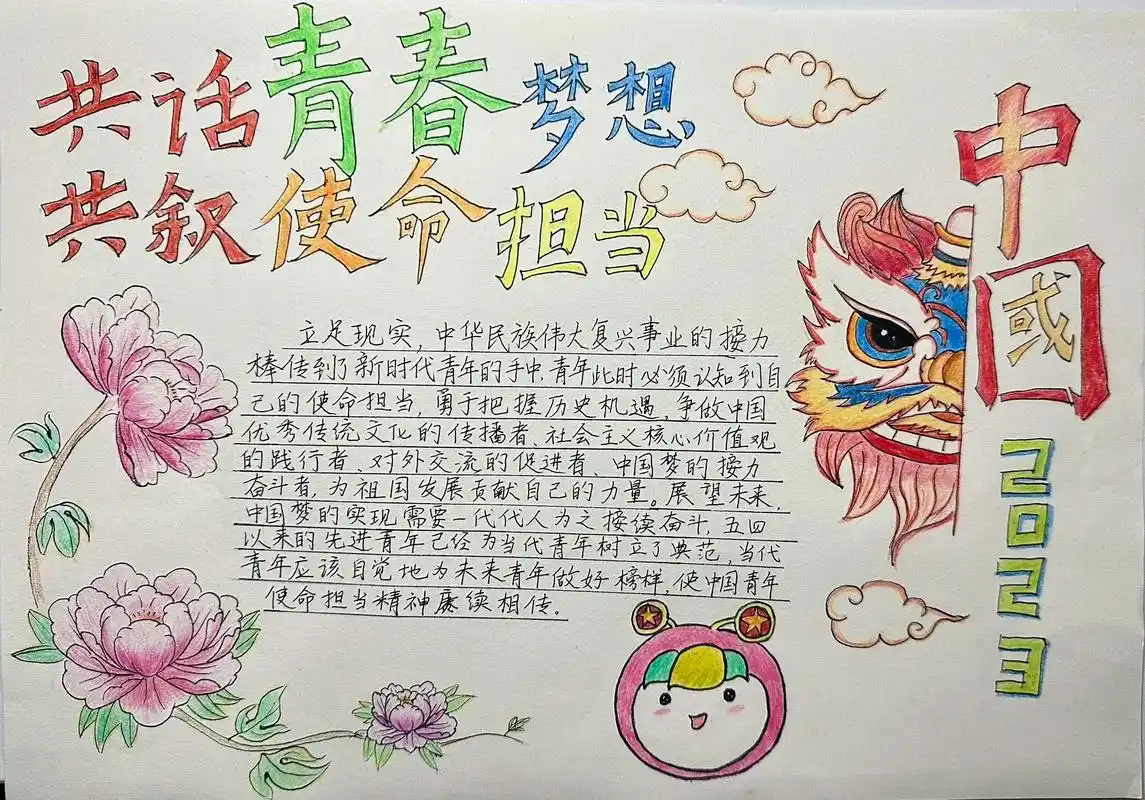 共话青春梦想
共叙使命担当
立足现实,中华民族伟大复兴事业的接力
棒传到了新时代青年的手中,青年此时必须认知到自
己的使命担当,勇于把握历史机遇,争做中国
优秀传统文化的传播者、社会主义核心价值观
的践行者、对外交流的促进者、中国梦的接力
奋斗者,为祖国发展贡献自己的力量。展望未来,
中国梦的实现需要一代代人为之接续奋斗,五四
以来的先进青年已经为当代青年树立了典范,当代
青年应该自觉地为未来青年做好榜样,使中国青年
使命担当精神赓续相传。
中國
2023